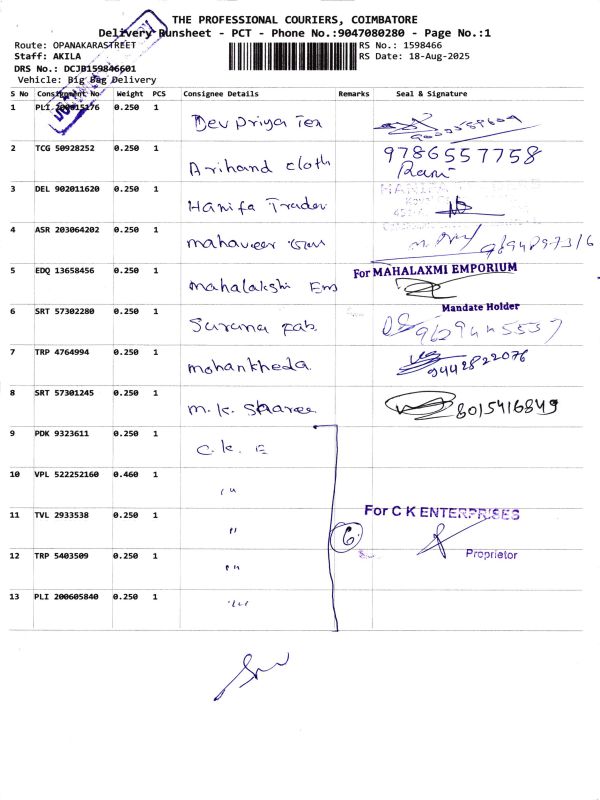 THE PROFESSIONAL COURIERS, COIMBATORE
Delivery Runsheet - PCT - Phone No.:9047080280 - Page No.:1
Route: OPANAKARASTREET RS No.: 1598466
Staff: AKILA RS Date: 18-Aug-2025
DRS No.: DCJB159846601
Vehicle: Big Bag Delivery
S No Consignment No Weight PCS Consignee Details Remarks Seal & Signature
1 PLI 200615176 0.250 1 Dev Priya Tex
2 TCG 50928252 0.250 1 Arihand cloth 9786557758
Rani
3 DEL 902011620 0.250 1 Hanifa Trader
4 ASR 203064202 0.250 1 mahaveer
5 EDQ 13658456 0.250 1 mahalakshi Em For MAHALAXMI EMPORIUM
Mandate Holder
6 SRT 57302280 0.250 1 Surana fab.
7 TRP 4764994 0.250 1 mohankheda 9442822076
8 SRT 57301245 0.250 1 m.k. Sharee 8015416849
9 PDK 9323611 0.250 1 C.k. E
10 VPL 522252160 0.460 1 "
11 TVL 2933538 0.250 1 " For C K ENTERPRISES
6
12 TRP 5403509 0.250 1 " Proprietor
13 PLI 200605840 0.250 1 "